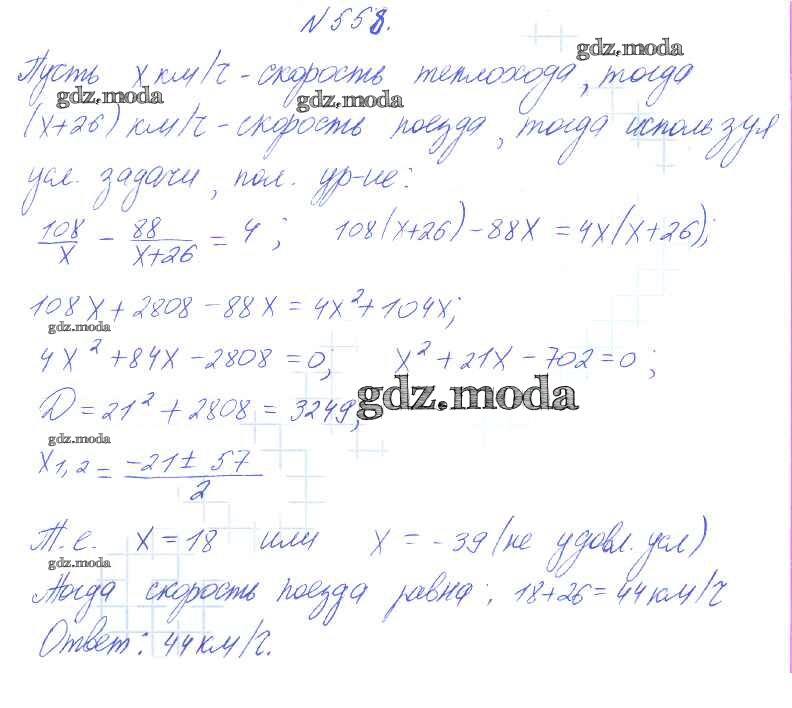 N 558.
gdz.moda
Пусть х км/ч - скорость теплохода, тогда
gdz.moda gdz.moda
(х+26) км/ч - скорость поезда, тогда используя
усл. задачи, пол. ур-ие:
108/x - 88/(x+26) = 4; 108(x+26) - 88x = 4x(x+26);
108x + 2808 - 88x = 4x² + 104x;
gdz.moda
4x² + 84x - 2808 = 0; x² + 21x - 702 = 0;
D = 21² + 2808 = 3249;
gdz.moda
gdz.moda
x1,2 = (-21 ± 57)/2
Т.е. х = 18 или х = -39 (не удовл. усл)
gdz.moda
Тогда скорость поезда равна: 18+26 = 44 км/ч
Ответ: 44 км/ч.